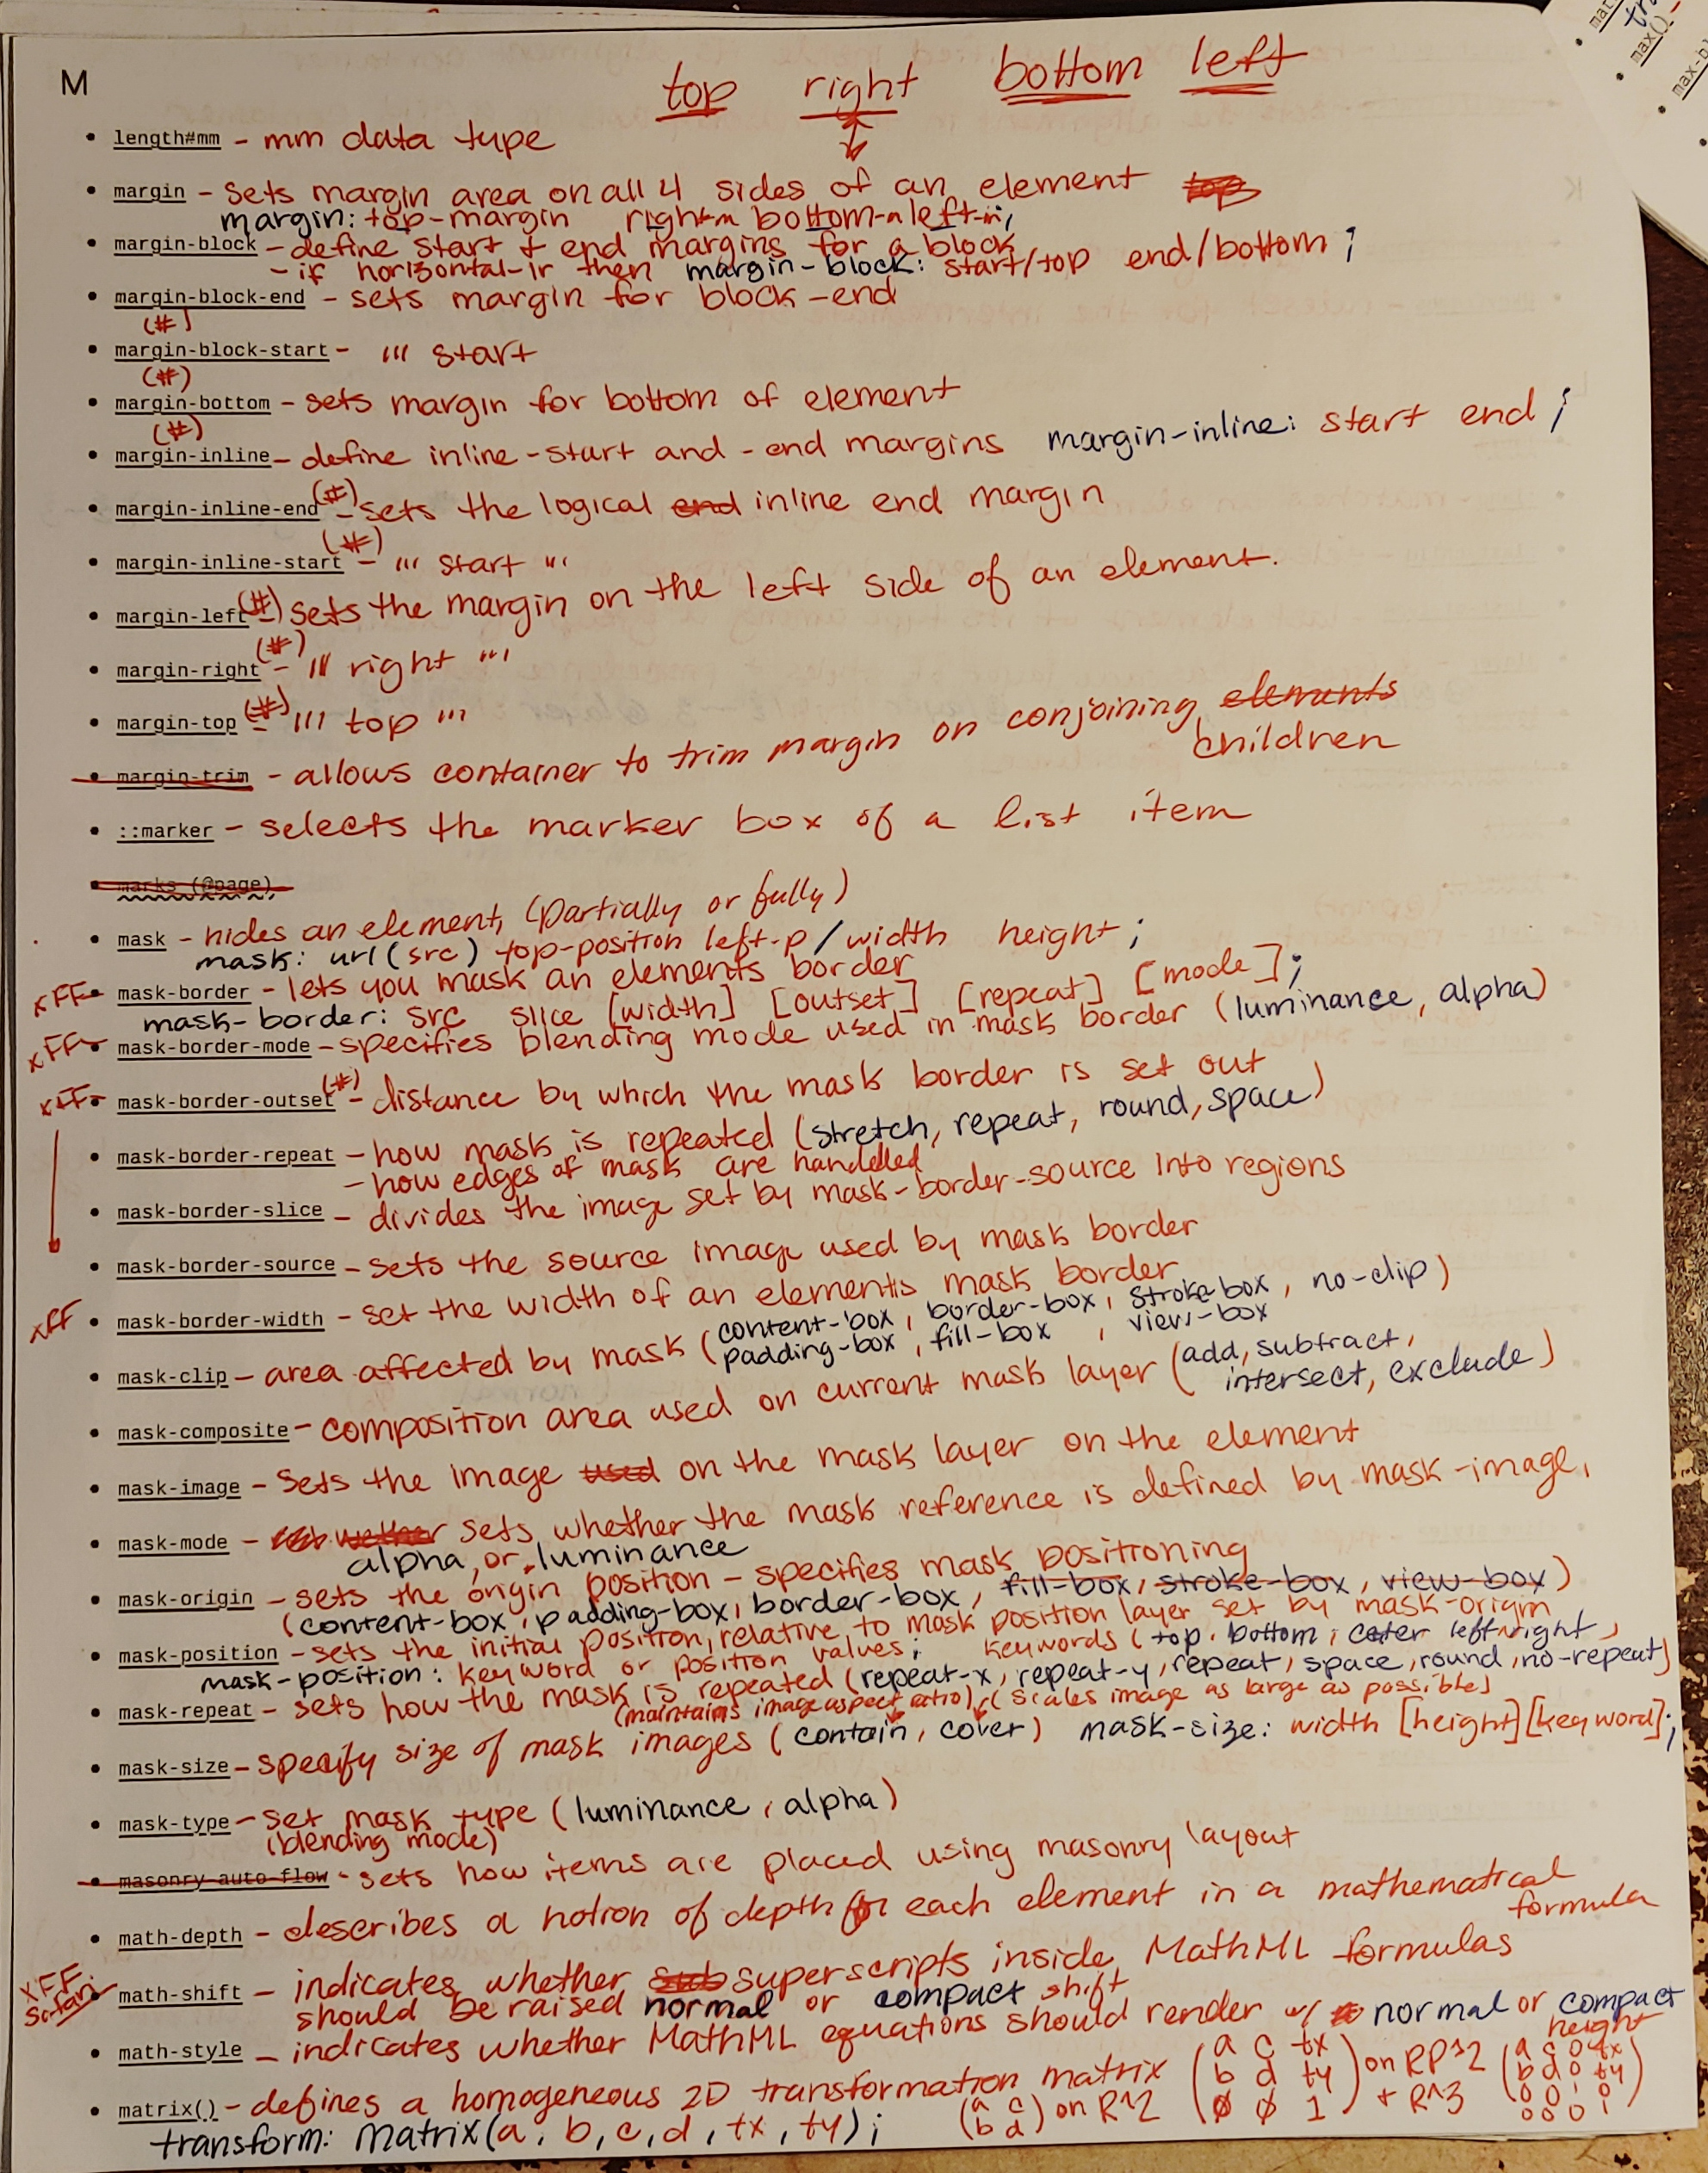 M
top right bottom left
length#mm - mm data type
margin - sets margin area on all 4 sides of an element
margin: top-margin right-m bottom-m left-m;
margin-block - define start + end margins for a block
- if horizontal-lr then margin-block: start/top end/bottom ;
margin-block-end - sets margin for block-end
(#)
margin-block-start - ''' start
(#)
margin-bottom - sets margin for bottom of element
(#)
margin-inline - define inline-start and -end margins margin-inline: start end ;
margin-inline-end (#) - sets the logical end inline end margin
margin-inline-start (#) - ''' start '''
margin-left (#) - sets the margin on the left side of an element.
margin-right (#) - ''' right '''
margin-top (#) - ''' top '''
margin-trim - allows container to trim margin on conjoining elements
children
::marker - selects the marker box of a list item
marks (@page)
mask - hides an element, (partially or fully)
mask: url(src) top-position left-p/width height;
xFF mask-border - lets you mask an elements border
mask-border: src slice [width] [outset] [repeat] [mode];
xFF mask-border-mode - specifies blending mode used in mask border (luminance, alpha)
xFF mask-border-outset (#) - distance by which the mask border is set out
mask-border-repeat - how mask is repeated (stretch, repeat, round, space)
- how edges of mask are handelled
mask-border-slice - divides the image set by mask-border-source into regions
mask-border-source - sets the source image used by mask border
xFF mask-border-width - set the width of an elements mask border
mask-clip - area affected by mask (content-box, border-box, stroke-box, no-clip)
padding-box, fill-box, view-box
mask-composite - composition area used on current mask layer (add, subtract,
intersect, exclude)
mask-image - sets the image used on the mask layer on the element
mask-mode - wether sets whether the mask reference is defined by mask-image,
alpha, or luminance
mask-origin - sets the origin position - specifies mask positioning
(content-box, padding-box, border-box, fill-box, stroke-box, view-box)
mask-position - sets the initial position, relative to mask position layer set by mask-origin
mask-position: keyword or position values; keywords (top, bottom, center left, right)
mask-repeat - sets how the mask is repeated (repeat-x, repeat-y, repeat, space, round, no-repeat)
(maintains image aspect ratio), (scales image as large as possible)
mask-size - specify size of mask images (contain, cover) mask-size: width [height][keyword];
mask-type - set mask type (luminance, alpha)
(blending mode)
masonry-auto-flow - sets how items are placed using masonry layout
math-depth - describes a notion of depth for each element in a mathematical
formula
xFF Safari math-shift - indicates whether sub superscripts inside MathML formulas
should be raised normal or compact shift
math-style - indicates whether MathML equations should render w/ a normal or compact
height
matrix() - defines a homogeneous 2D transformation matrix (a c b d) on R^2 (a c tx b d ty 0 0 1) on RP^2 + R^3 (a c 0 tx b d 0 ty 0 0 1 0 0 0 0 1)
transform: matrix(a, b, c, d, tx, ty);